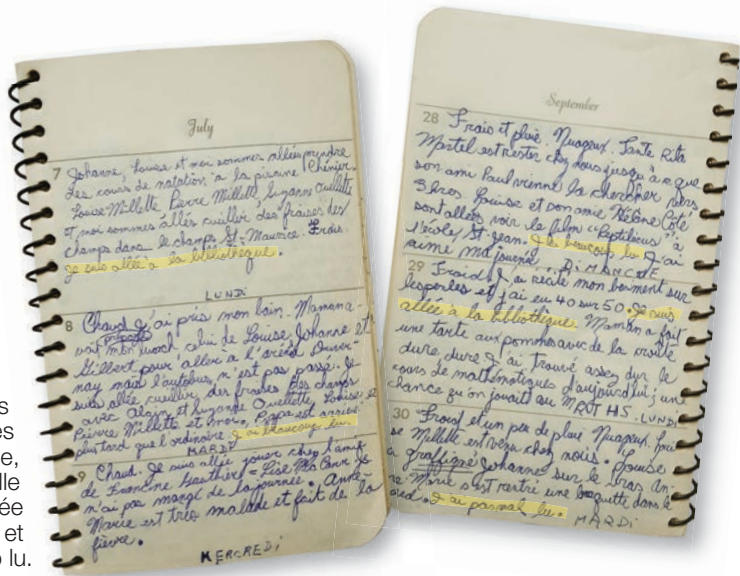 July
7 Johanne, Louise et moi sommes allées prendre
des cours de natation à la piscine Chénier.
Louise Millette Pierre Millette, Suzanne Ouellette
et moi sommes allés cuillir des fraises des
champs dans le champs St-Maurice. Frais.
Je suis allée à la bibliothèque.
LUNDI
8 Chaud J'ai pris mon bain. Maman a-
vait préparé mon lunch celui de Louise Johanne et
Gilbert pour aller a l'aréna Duver-
nay mais l'autobus n'est pas passé. Je
suis allée cuillir des fraises des champs
avec Alain et Suzanne Ouellette, Louise et
Pierre Millette et moi. Papa est arrivé
plus tard que l'ordinaire J'ai beaucoup lu.
MARDI
9 Chaud. Je suis allée jouer chez l'amie
de Francine Gauthier = Lise Mc Cann Je
n'ai pas mangé de la journée. Anne-
Marie est très malade et fait de la
fièvre.
MERCREDI
September
28 Frais et pluie. Nuageux. Tante Rita
Martel est rester chez nous jusqu'à ce que
son ami Paul vienne la chercher vers
3 hres Louise et son amie Hélène Côté
sont allées voir le film "Reptilicus" à
l'école St-Jean. J'ai beaucoup lu J'ai
aimé ma journée. DIMANCHE
29 Froid J'ai récité mon boniment sur
les perles et j'ai eu 40 sur 50. Je suis
allée à la bibliothèque. Maman a fait
une tarte aux pommes avec de la croûte
dure, dure J'ai trouvé assez dur le
cours de mathématiques d'aujourd'hui; une
chance qu'on jouait au MATHS. LUNDI
30 Froid et un peu de pluie Nuageux. Loui
se Millette est venu chez nous. Louise
a graffigné Johanne sur le bras An-
ne-Marie s'est rentré une baguette dans le
pied. J'ai pas mal lu.
MARDI
s
es
e,
lle
ée
et
o lu.